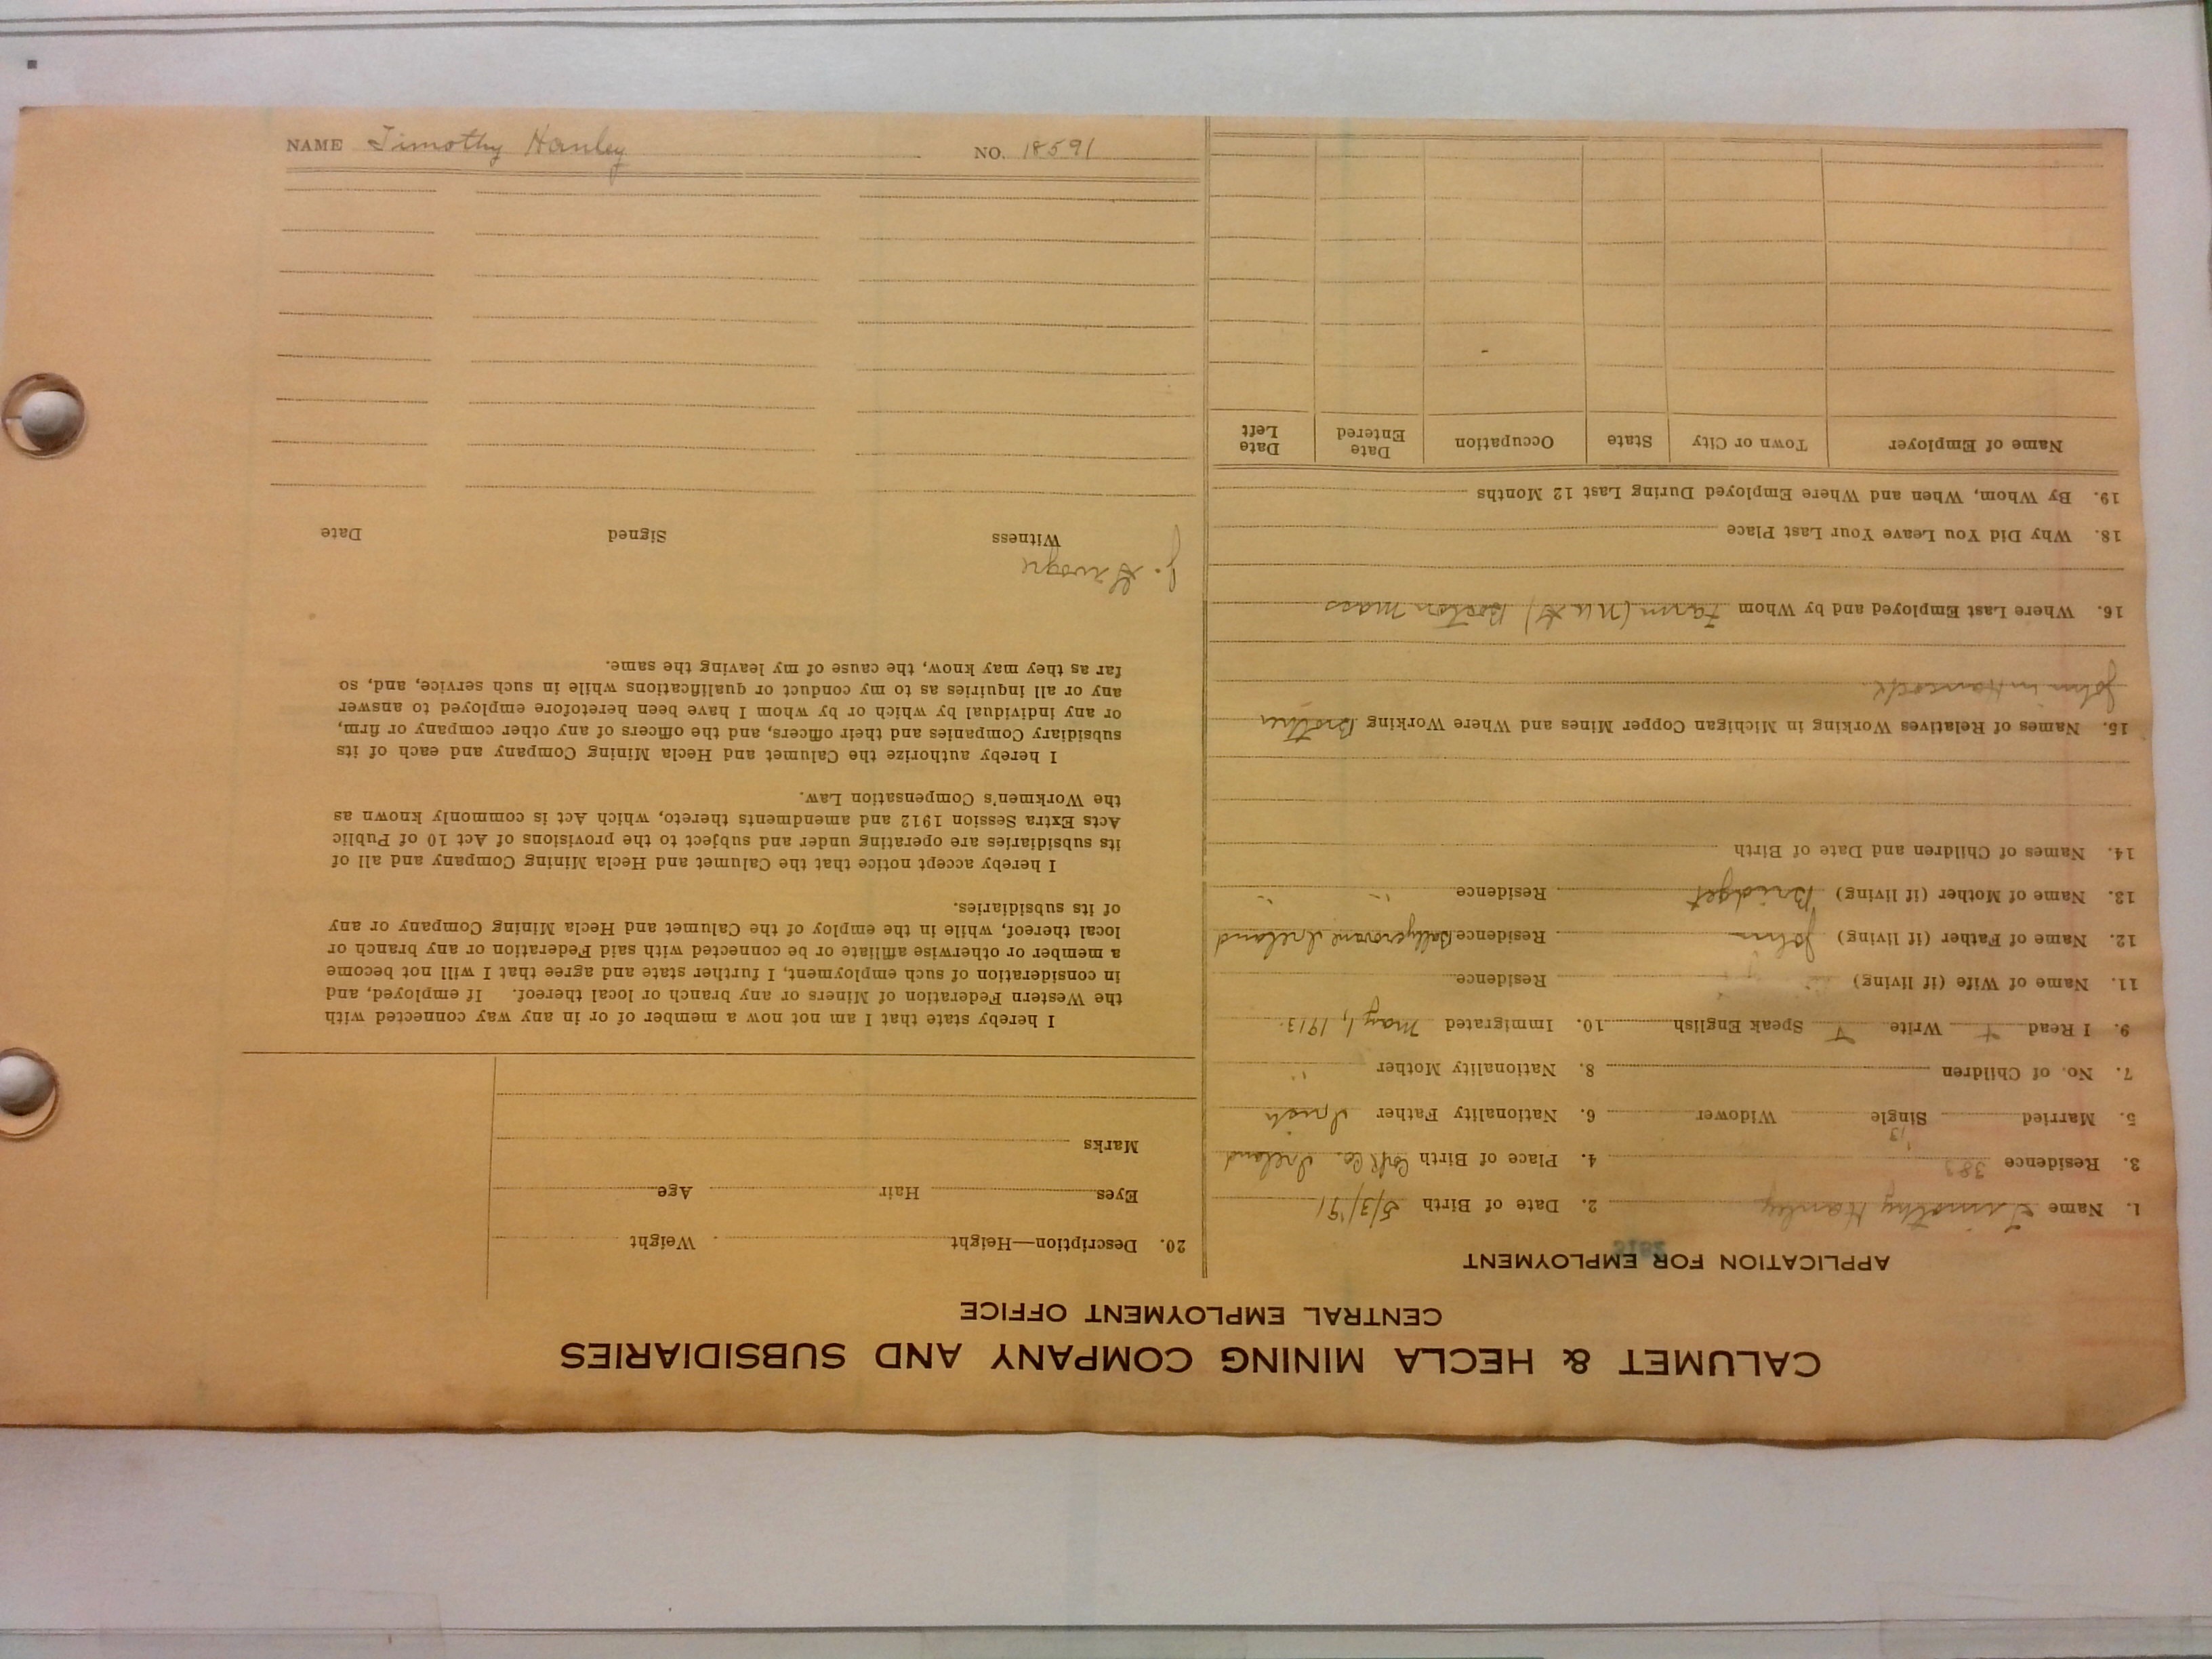 NAME Timothy Hanley NO. 18591
CALUMET & HECLA MINING COMPANY AND SUBSIDIARIES
CENTRAL EMPLOYMENT OFFICE
APPLICATION FOR EMPLOYMENT
3182
1. Name Timothy Hanley 2. Date of Birth 5/3/'91
3. Residence 383 4. Place of Birth Cork Co. Ireland
5. Married Single Widower 6. Nationality Father Irish
7. No. of Children 8. Nationality Mother "
9. I Read + Write + Speak English 10. Immigrated May 1, 1913.
11. Name of Wife (if living) Residence
12. Name of Father (if living) John Residence Ireland
13. Name of Mother (if living) Bridget Residence " "
14. Names of Children and Date of Birth
15. Names of Relatives Working in Michigan Copper Mines and Where Working Brother
John in Hancock.
16. Where Last Employed and by Whom Farm Boston Mass
18. Why Did You Leave Your Last Place
19. By Whom, When and Where Employed During Last 12 Months
Name of Employer Town or City State Occupation Date Entered Date Left
20. Description—Height Weight
Eyes Hair Age
Marks
I hereby state that I am not now a member of or in any way connected with
the Western Federation of Miners or any branch or local thereof. If employed, and
in consideration of such employment, I further state and agree that I will not become
a member or otherwise affiliate or be connected with said Federation or any branch or
local thereof, while in the employ of the Calumet and Hecla Mining Company or any
of its subsidiaries.
I hereby accept notice that the Calumet and Hecla Mining Company and all of
its subsidiaries are operating under and subject to the provisions of Act 10 of Public
Acts Extra Session 1912 and amendments thereto, which Act is commonly known as
the Workmen's Compensation Law.
I hereby authorize the Calumet and Hecla Mining Company and each of its
subsidiary Companies and their officers, and the officers of any other company or firm,
or any individual by which or by whom I have been heretofore employed to answer
any or all inquiries as to my conduct or qualifications while in such service, and, so
far as they may know, the cause of my leaving the same.
Witness Signed Date